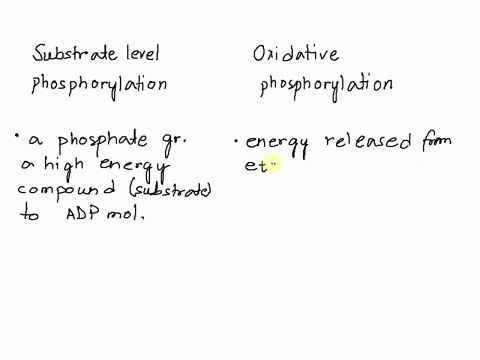 Substrate level
phosphorylation
• a phosphate gr.
a high energy
compound (substrate)
to ADP mol.
Oxidative
phosphorylation
• energy released from
et